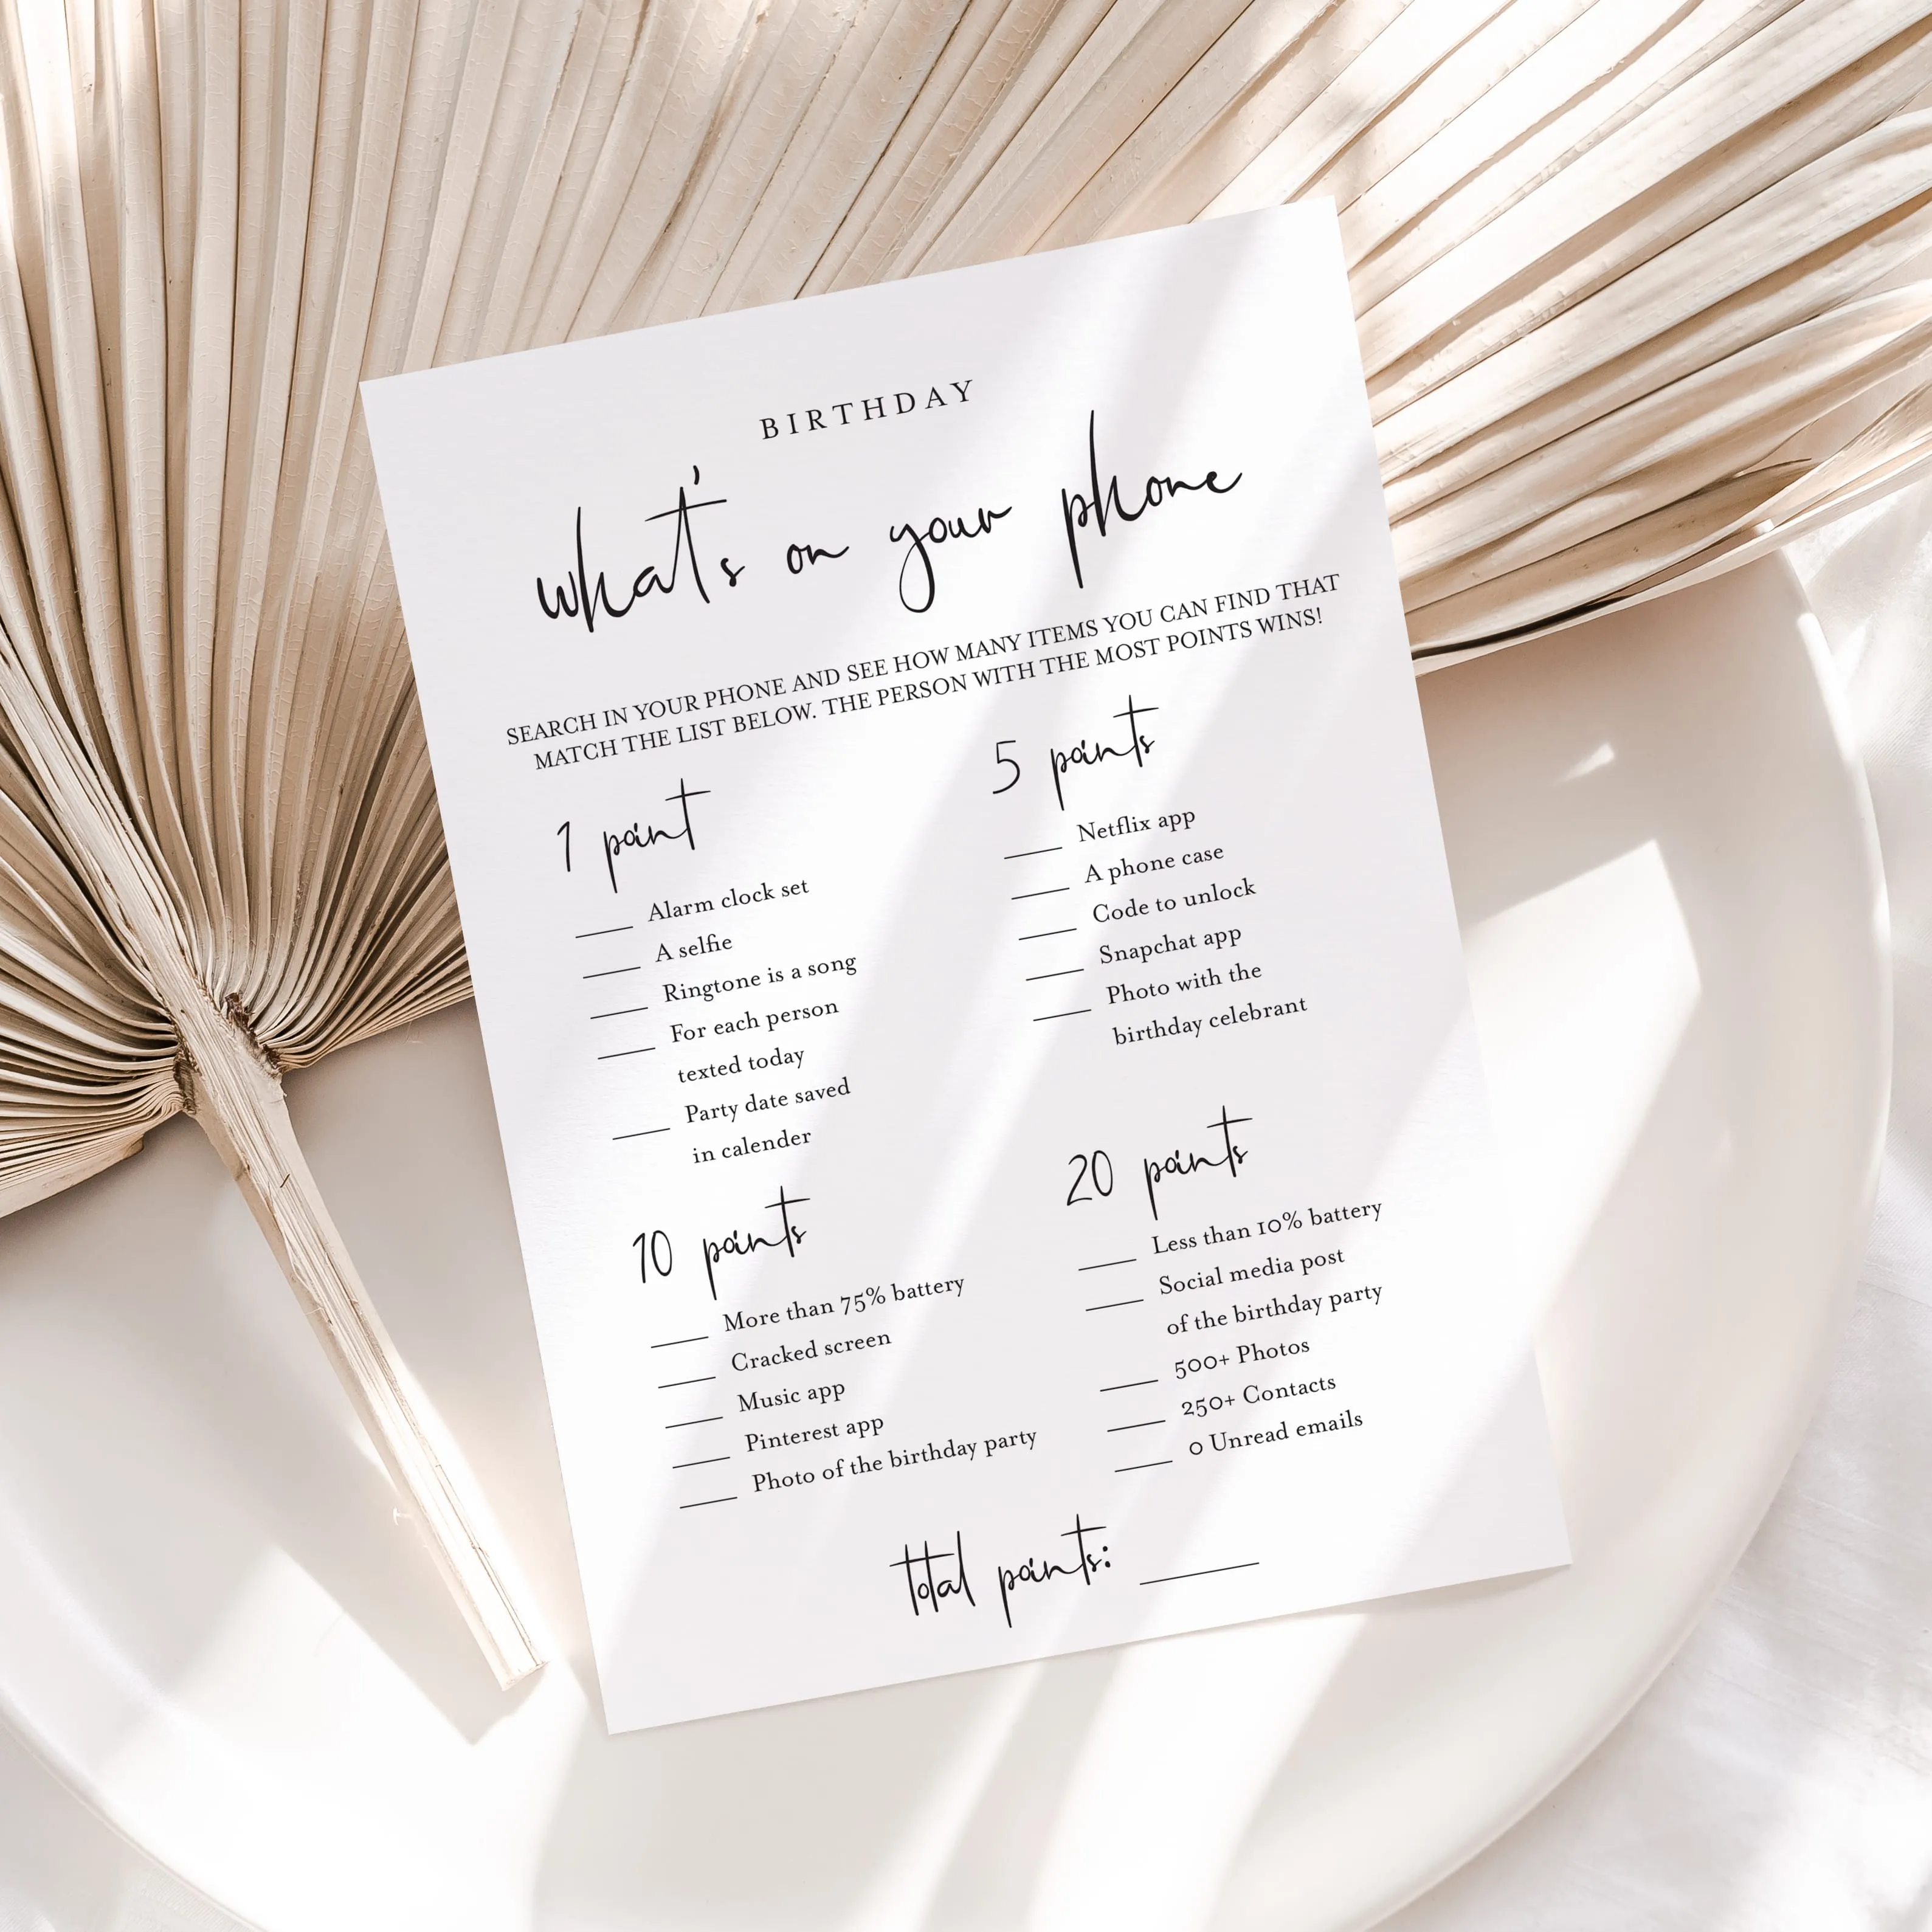 BIRTHDAY
what's on your phone
SEARCH IN YOUR PHONE AND SEE HOW MANY ITEMS YOU CAN FIND THAT
MATCH THE LIST BELOW. THE PERSON WITH THE MOST POINTS WINS!
1 point
____ Alarm clock set
____ A selfie
____ Ringtone is a song
____ For each person
texted today
____ Party date saved
in calender
5 points
____ Netflix app
____ A phone case
____ Code to unlock
____ Snapchat app
____ Photo with the
birthday celebrant
10 points
____ More than 75% battery
____ Cracked screen
____ Music app
____ Pinterest app
____ Photo of the birthday party
20 points
____ Less than 10% battery
____ Social media post
of the birthday party
____ 500+ Photos
____ 250+ Contacts
____ 0 Unread emails
total points: ____